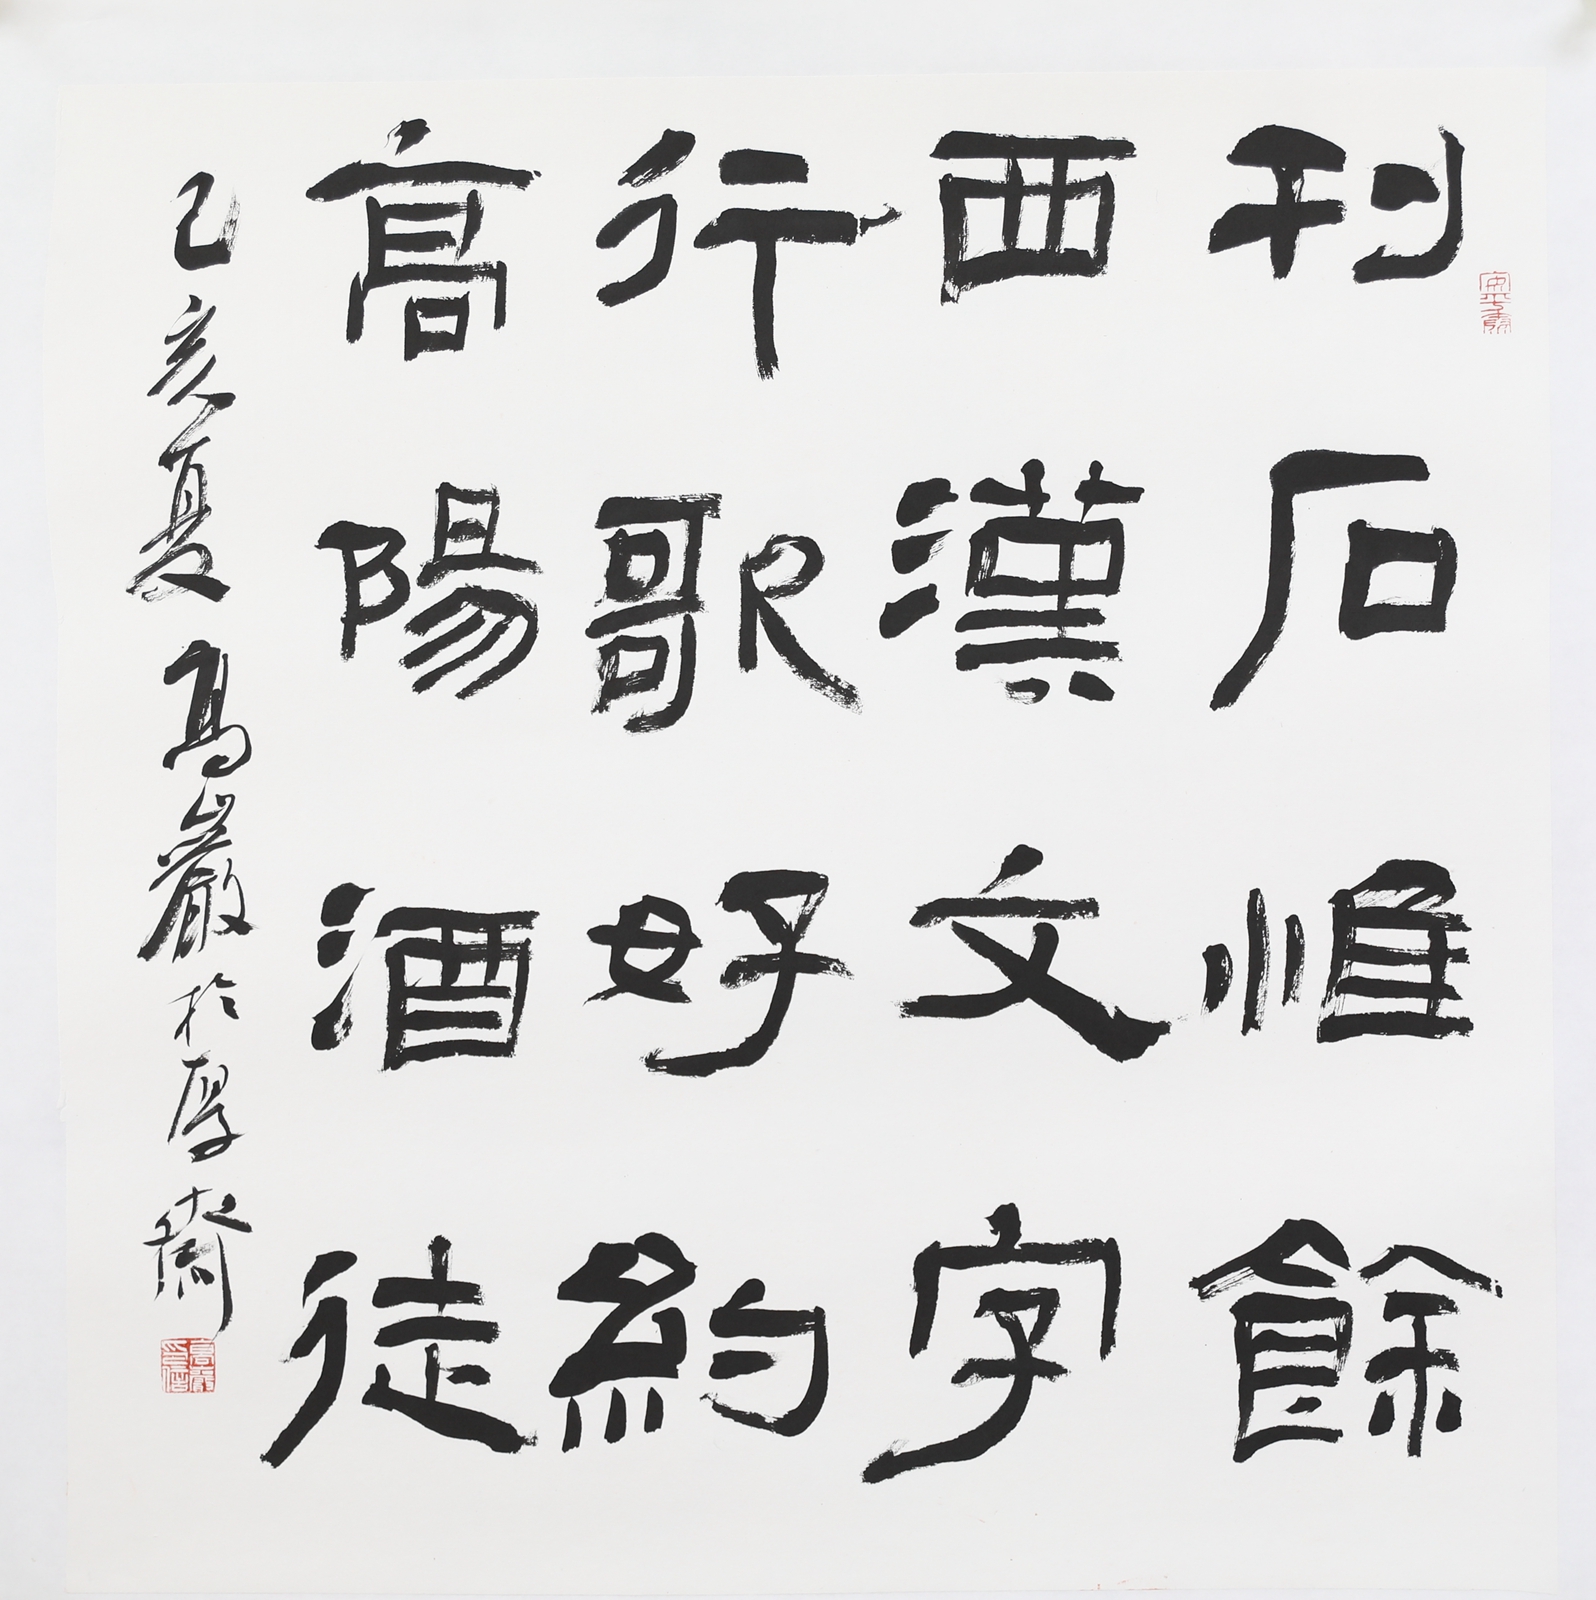 刊石惟餘
西漢文字
行歌好約
高陽酒徒
己亥夏高巖於厚齋